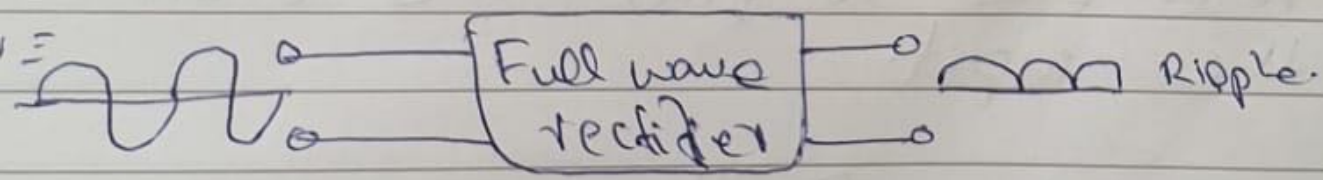 Full wave
rectifier
Ripple.